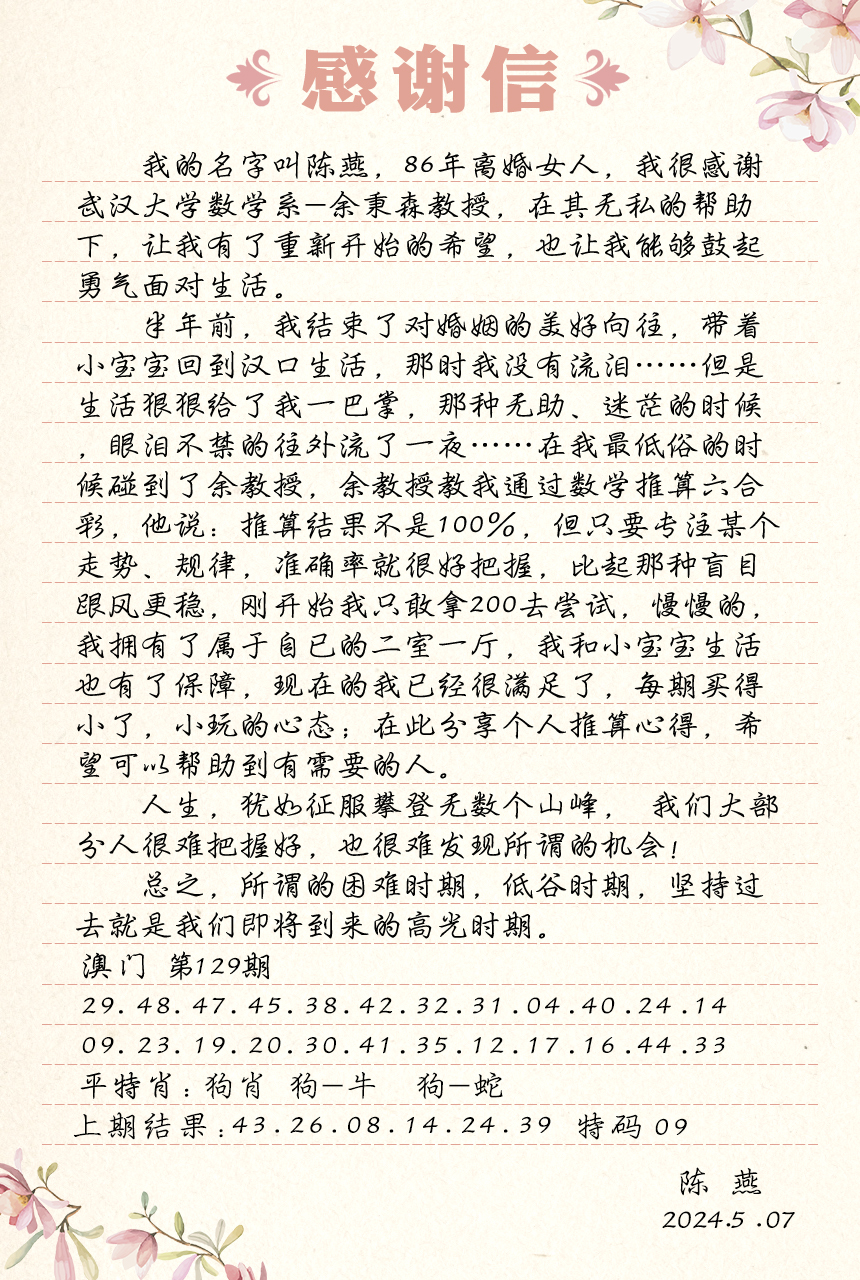 感谢信
我的名字叫陈燕，86年离婚女人，我很感谢
武汉大学数学系—余秉森教授，在其无私的帮助
下，让我有了重新开始的希望，也让我能够鼓起
勇气面对生活。
半年前，我结束了对婚姻的美好向往，带着
小宝宝回到汉口生活，那时我没有流泪……但是
生活狠狠给了我一巴掌，那种无助、迷茫的时候
，眼泪不禁的往外流了一夜……在我最低俗的时
候碰到了余教授，余教授教我通过数学推算六合
彩，他说：推算结果不是100%，但只要专注某个
走势、规律，准确率就很好把握，比起那种盲目
跟风更稳，刚开始我只敢拿200去尝试，慢慢的，
我拥有了属于自已的二室一厅，我和小宝宝生活
也有了保障，现在的我已经很满足了，每期买得
小了，小玩的心态；在此分享个人推算心得，希
望可以帮助到有需要的人。
人生，犹如征服攀登无数个山峰， 我们大部
分人很难把握好，也很难发现所谓的机会！
总之，所谓的困难时期，低谷时期，坚持过
去就是我们即将到来的高光时期。
澳门 第129期
29.48.47.45.38.42.32.31.04.40.24.14
09.23.19.20.30.41.35.12.17.16.44.33
平特肖：狗肖 狗—牛 狗—蛇
上期结果：43.26.08.14.24.39 特码 09
陈 燕
2024.5.07